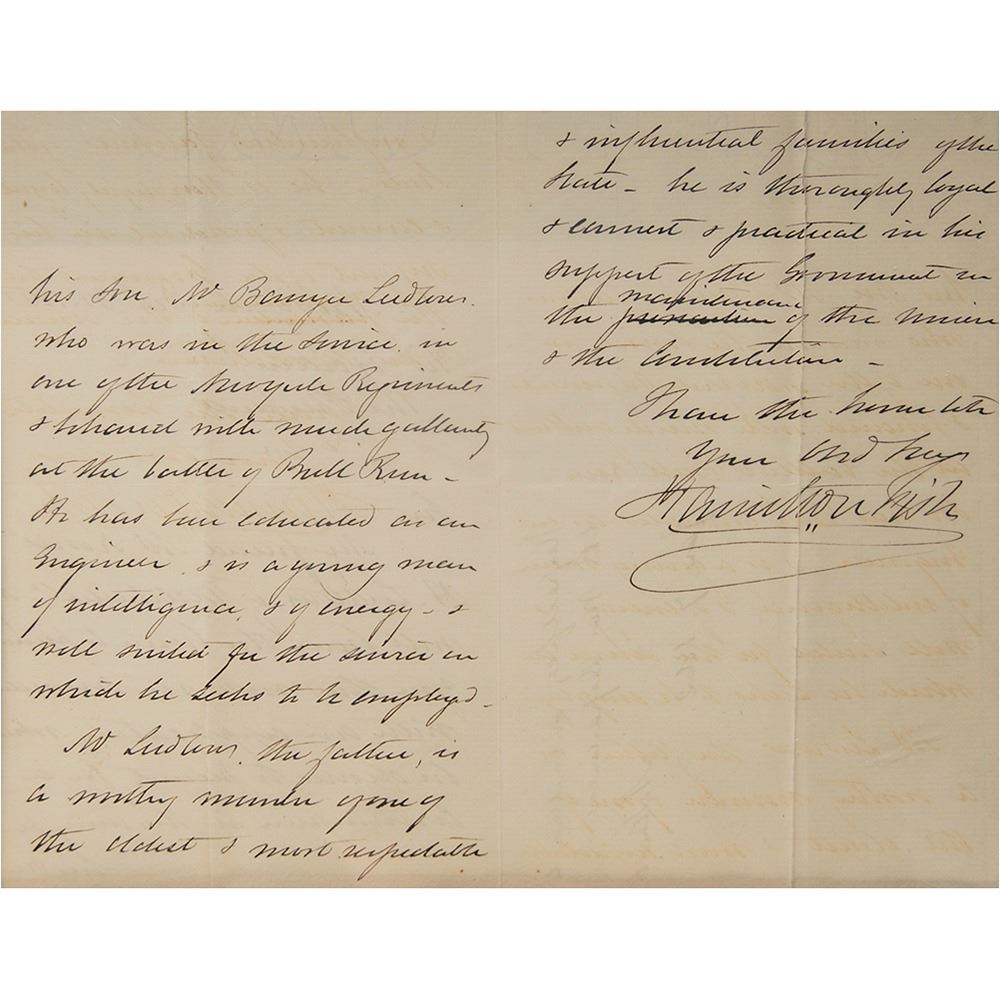 his son. Mr Banyer Ludlow.
who was in the service in
one of the New York Regiments
& behaved with much gallantry
at the battle of Bull Run -
He has been educated as an
Engineer, & is a young man
of intelligence, & of energy - &
well suited for the service in
which he seeks to be employed -
Mr Ludlow, the father, is
a worthy member of one of
the oldest & most respectable
& influential families of the
State - he is thoroughly loyal
& earnest & practical in his
support of the Government in
maintenance
the of the Union
& the Constitution -
I have the honor to be
Your Obd Serv
Hamilton Fish